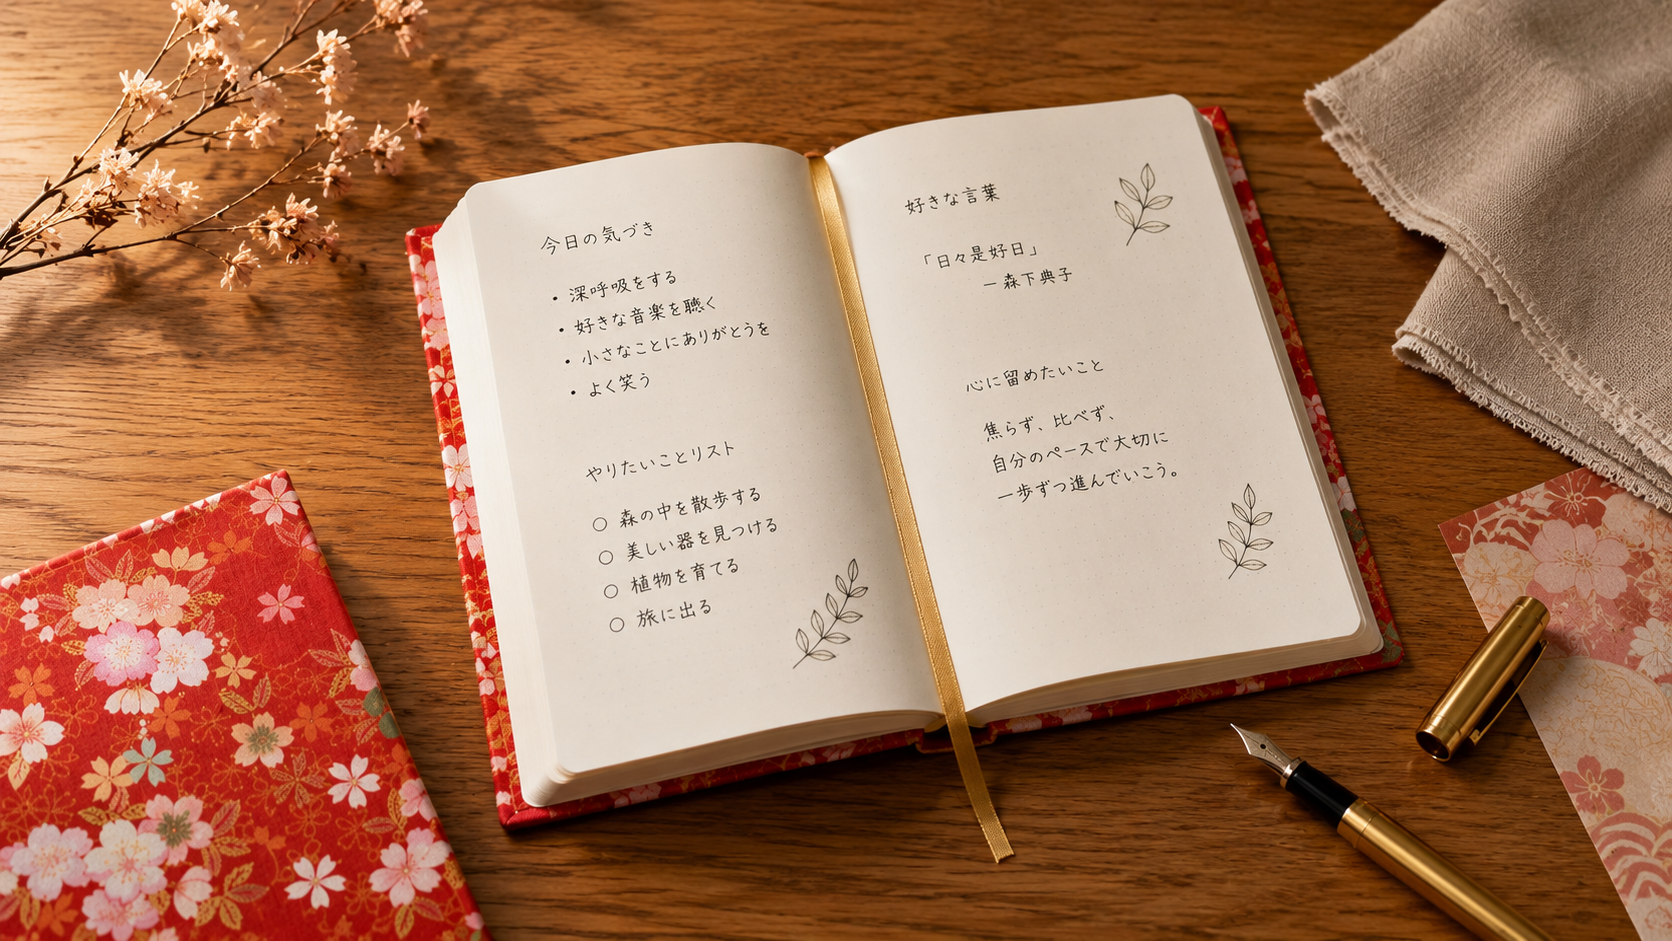 今日の気づき
・深呼吸をする
・好きな音楽を聴く
・小さなことにありがとうを
・よく笑う
やりたいことリスト
○ 森の中を散歩する
○ 美しい器を見つける
○ 植物を育てる
○ 旅に出る
好きな言葉
「日々是好日」
― 森下典子
心に留めたいこと
焦らず、比べず、
自分のペースで大切に
一歩ずつ進んでいこう。